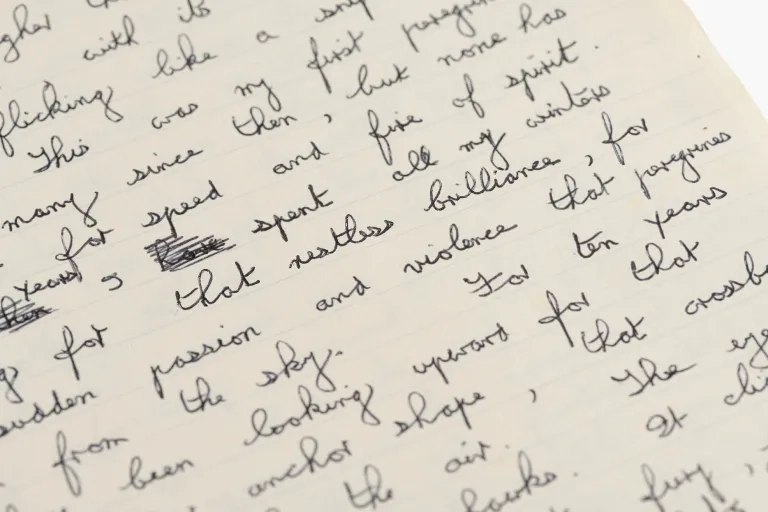 gher
with its
flicking like a
This was my first
many since then, but none has
for speed and fire of spirit.
years, I spent all my winters
for that restless brilliance, for
sudden passion and violence that peregrines
from the sky. For ten years
been looking upward for that
anchor shape, that
the air. The
hawks. It
fury,